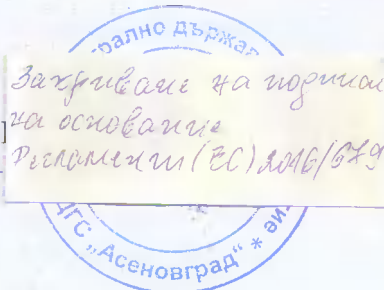 рално държав
Закриване на подписи
на основание
Регламент (ЕС) 2016/679
ДГС „Асеновград“ *